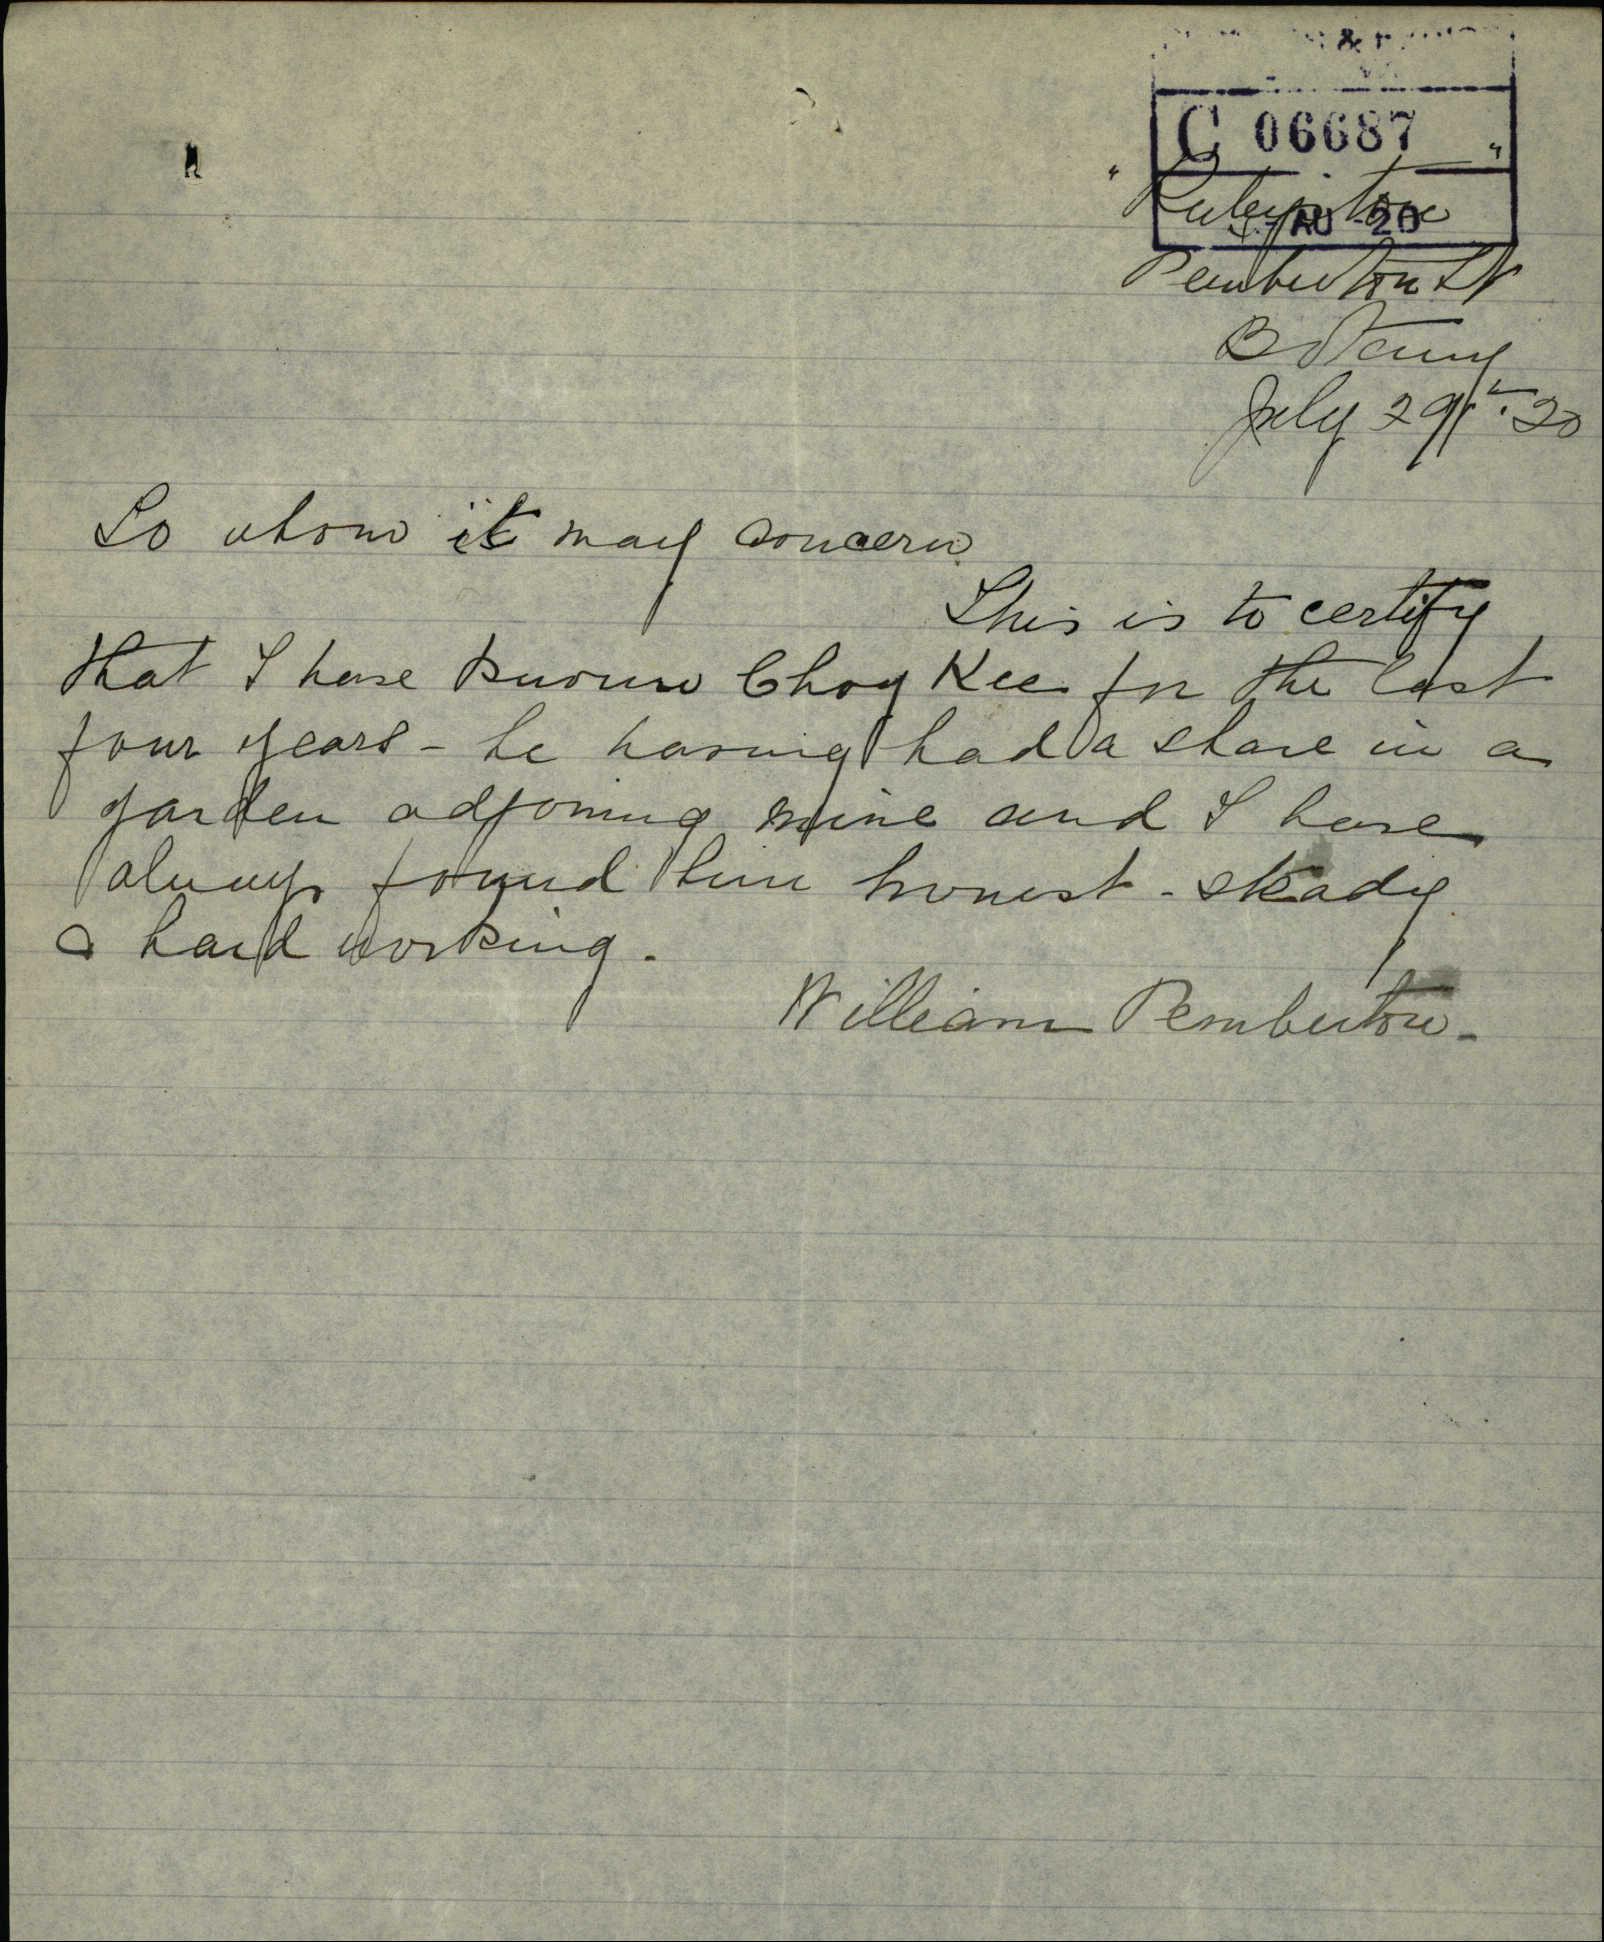 C 06687
AU 20
Pemberton St
Botany
July 29th 20
To whom it may concern
This is to certify
that I have known Choy Kee for the last
four years - he having had a share in a
garden adjoining mine and I have
always found him honest - steady
& hard working.
William Pemberton -